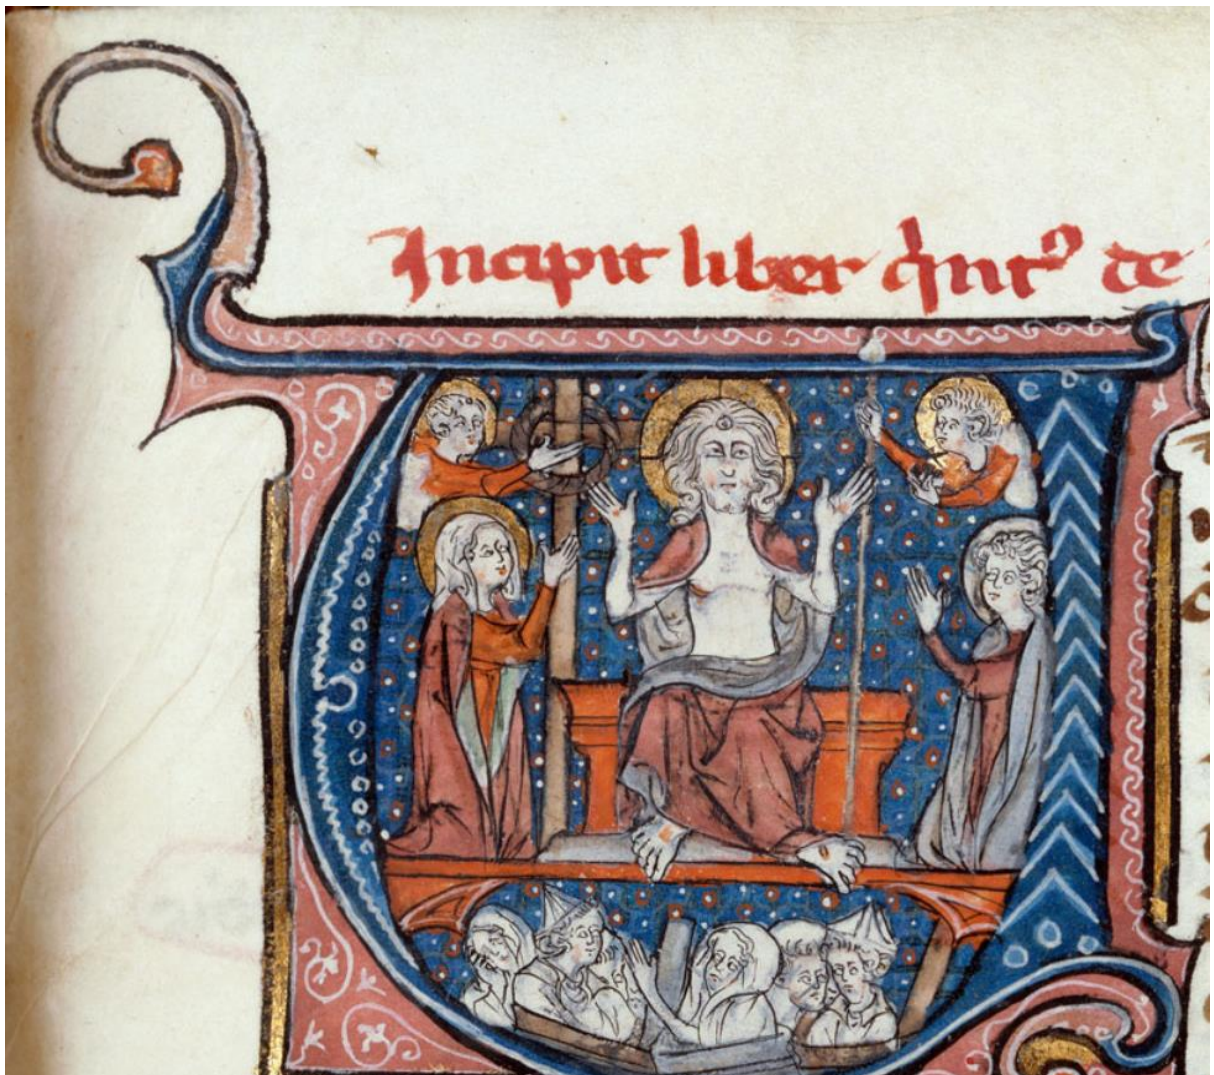 Incipit liber q̍nt⁹ de